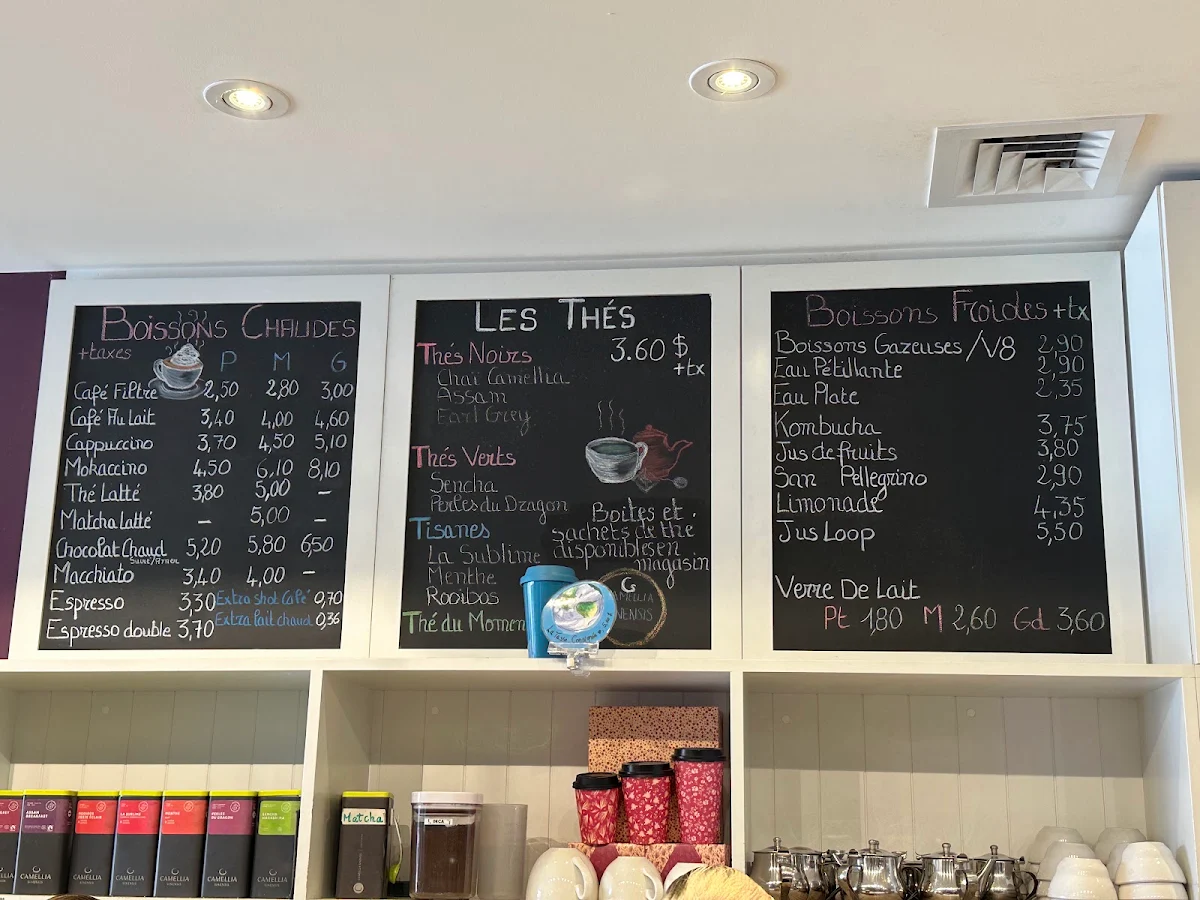 Boissons Chaudes
+taxes P M G
Café Filtre 2,50 2,80 3,00
Café Au Lait 3,40 4,00 4,60
Cappuccino 3,70 4,50 5,10
Mokaccino 4,50 6,10 8,10
Thé Latté 3,80 5,00 –
Matcha Latté – 5,00 –
Chocolat Chaud 5,20 5,80 6,50
Macchiato 3,40 4,00 –
Espresso 3,30 Extra shot Café 0,70
Espresso double 3,70 Extra lait chaud 0,36
Les Thés
Thés Noirs 3.60 $
+tx
Chaï Camellia
Assam
Earl Grey
Thés Verts
Sencha
Perles du Dragon
Tisanes
La Sublime
Menthe
Rooibos
Thé du Momen
Boîtes et
sachets de thé
disponibles en
magasin
CAMELLIA
SINENSIS
Boissons Froides +tx
Boissons Gazeuses/V8 2,90
Eau Pétillante 2,90
Eau Plate 2,35
Kombucha 3,75
Jus de fruits 3,80
San Pellegrino 2,90
Limonade 4,35
Jus Loop 5,50
Verre De Lait
Pt 1,80 M 2,60 Gd 3,60
CAMELLIA
CAMELLIA
CAMELLIA
CAMELLIA
CAMELLIA
CAMELLIA
Matcha
DECA